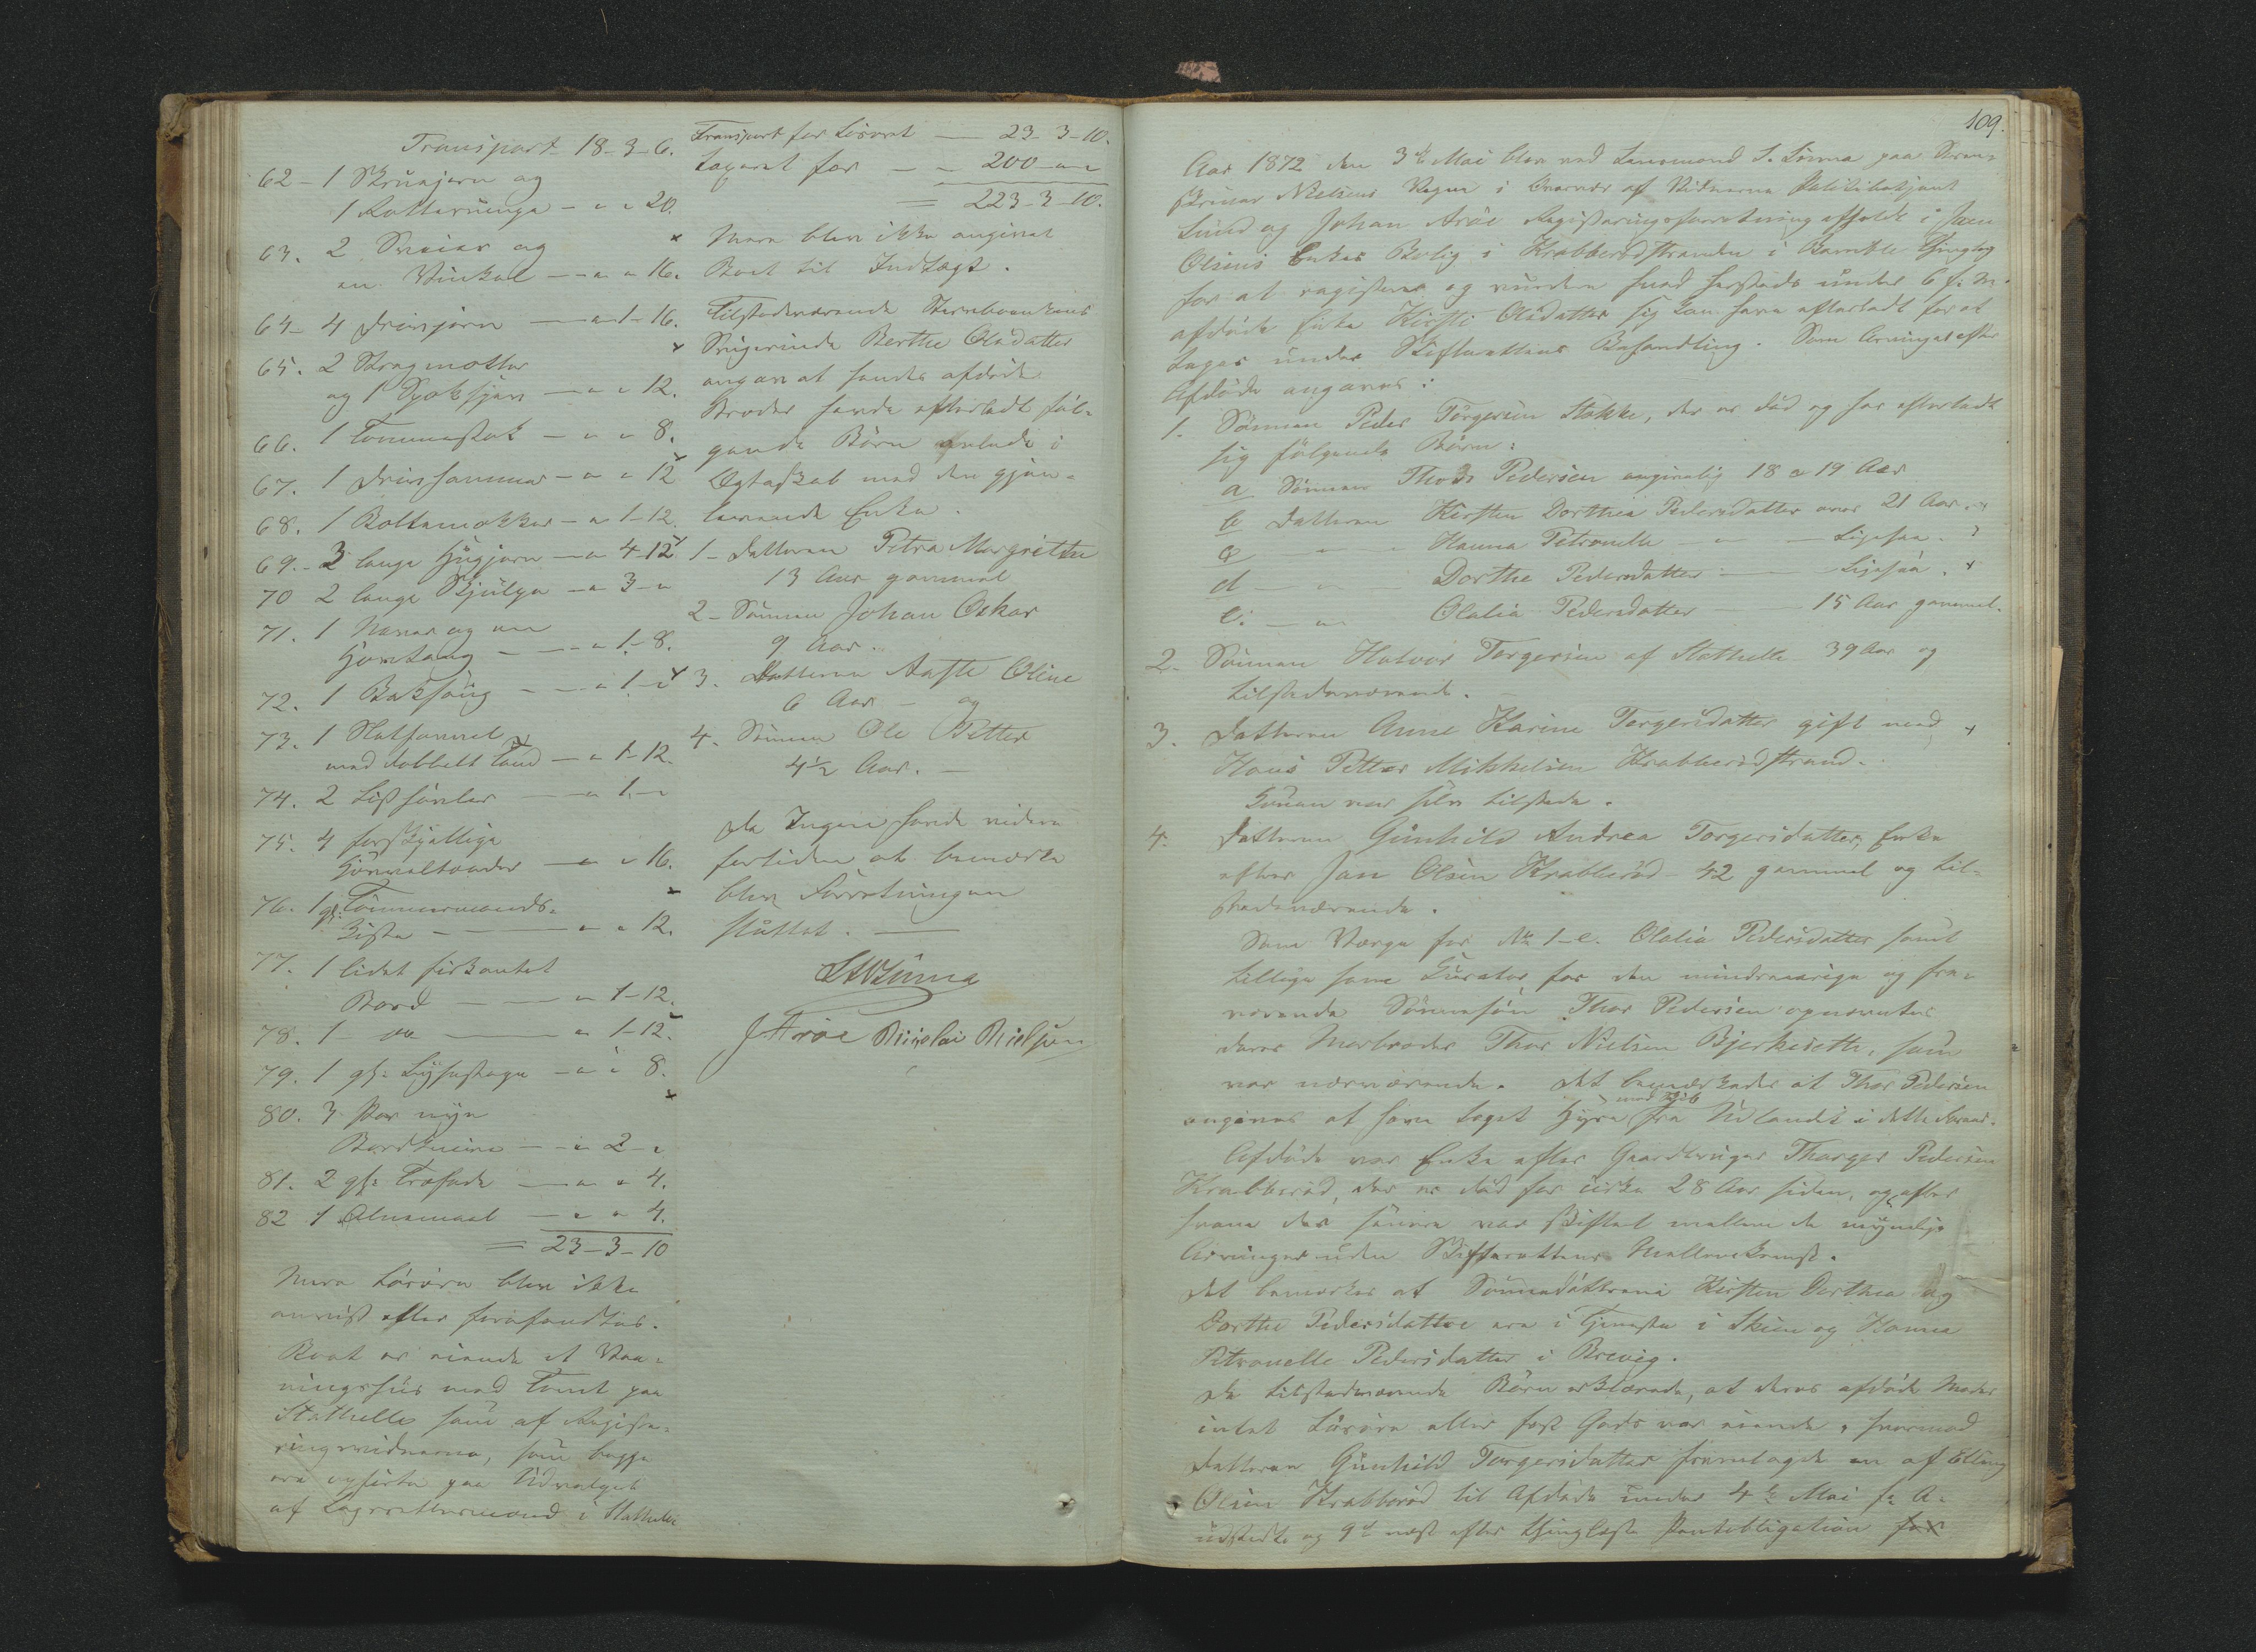 Transport 18-3-6.
62- 1 Skruejern og
1 Rottarunge - " " 20.
63. 2 Sveiver og
en Vinkel - " " 16.
64- 4 Drivjern - " 1-16.
65. 2 Stragmotter
og 1 - " " 12.
66. 1 Tommestok - " " 8.
67. 1 Drivhammer - " " 12
68. 1 Boltenokker - " 1-12.
69. 3 lange Hugjern - " 4-12
70 2 lange - " 3-"
71. 1 Naver og en
Hovtang - " 1-8.
72. 1 Baksaug - " 1-"
73. 1 Slethøvel
med dobbelt Tand - " 1-12.
74. 2 Listhøvler - " 1-"
75. 4 forskjællige
- " " 16.
76. 1 gl: Tømmermands-
Kiste - " " 12.
77. 1 lidet firkantet
Bord - " 1-12.
78. 1 do - " 1-12.
79. 1 gl: Lysestage - " " 8.
80. 3 Par nye
Bordknive - " 2-"
81. 2 gl: Træfade - " " 4.
82 1 Alnemaal - " " 4.
= 23-3-10
Mere Løsøre blev ikke
anvist eller forefandtes.
Boet er eiende et Vaa-
ningshus med Tomt paa
Stathelle som af Registe-
ringsvidnerne, som begge
ere opførte paa Udvalget
af Lagrettesmænd i Stathelle
Transport for Løsøret - 23-3-10.
taxeret for - 200-"-"
= 223-3-10.
Mere blev ikke angivet
Boet til Indtægt.
Tilstedeværende Stervboenkens
Svigerinde Berthe Olsdatter
angav at hendes afdøde
Broder havde efterladt føl-
gende Børn avlede i
Egteskab med den gjen-
levende Enke.
1- Datteren Petra Margrethe
13 Aar gammel
2- Sønnen Johan Oskar
9 Aar.
3. Datteren Aaste Oline
6 Aar - og
4. Sønnen Ole Petter
4½ Aar. -
Da Ingen havde videre
fortiden at bemærke
blev Forretningen
sluttet.
J. Arøe Nicolai Nielsen
109.
Aar 1872 den 3die Mai blev ved Lensmand S. Linna paa Soren-
skriver Nielsens Vegne i Overvær af Vidnerne Politibetjent
Lund og Johan Arøe Registeringsforretning afholdt i Jan
Olsens Enkes Bolig i Krabberødstranden i Bamble Thinglag
for at registere og vurdere hvad hersteds under 6 f. M.
afdøde Enke Kirsti Olsdatter sig kan have efterladt for at
tages under Skifterettens Behandling. Som Arvinger efter
Afdøde angaves:
1. Sønnen Peder Torgersen Stokke, der er død og har efterladt
sig følgende Børn:
a Sønnen Thor Pedersen angivelig 18 a 19 Aar
b Datteren Kirsten Dorthea Pedersdatter over 21 Aar.
c - " - Hanna Petronelle - Ligesaa.
d - " - Dorthe Pedersdatter - Ligesaa.
e. - " - Olalia Pedersdatter - 15 Aar gammel.
2- Sønnen Halvor Torgersen af Stathelle 39 Aar og
tilstedeværende.
3. Datteren Anne Karine Torgersdatter gift med
Hans Petter Mikkelsen Krabberødstrand.
Konen var selv tilstede.
4. Datteren Gunhild Andrea Torgersdatter, Enke
efter Jan Olsen Krabberød - 42 gammel og til-
stedeværende.
Som Værge for No 1-e. Olalia Pedersdatter samt
tillige som Curator for den mindreaarige og fra-
værende Sønnesøn Thor Pedersen opnævntes
deres Morbroder Thor Nielsen Bjerkesette, som
var nærværende. Det bemærkedes at Thor Pedersen
med Skib
angives at have taget Hyre fra Udlandet i dette Foraar.
Afdøde var Enke efter Gaardbruger Thorger Pedersen
Krabberød, der er død for cirka 28 Aar siden, og efter
hvem der senere var skiftet mellem de myndige
Arvinger uden Skifterettens Mellemkomst.
Det bemærkes at Sønnedøttrene Kirsten Dorthea og
Dorthe Pedersdattre ere i Tjeneste i Skien og Hanna
Petronelle Pedersdatter i Brevig.
De tilstedeværende Børn erklærede, at deres afdøde Moder
intet Løsøre eller fast Gods var eiende, hvormod
Datteren Gunhild Torgersdatter fremlagde en af Elling
Olsen Krabberød til Afdøde under 4de Mai f. A.
udstedt og 9de næst efter thinglæst Panteobligation for